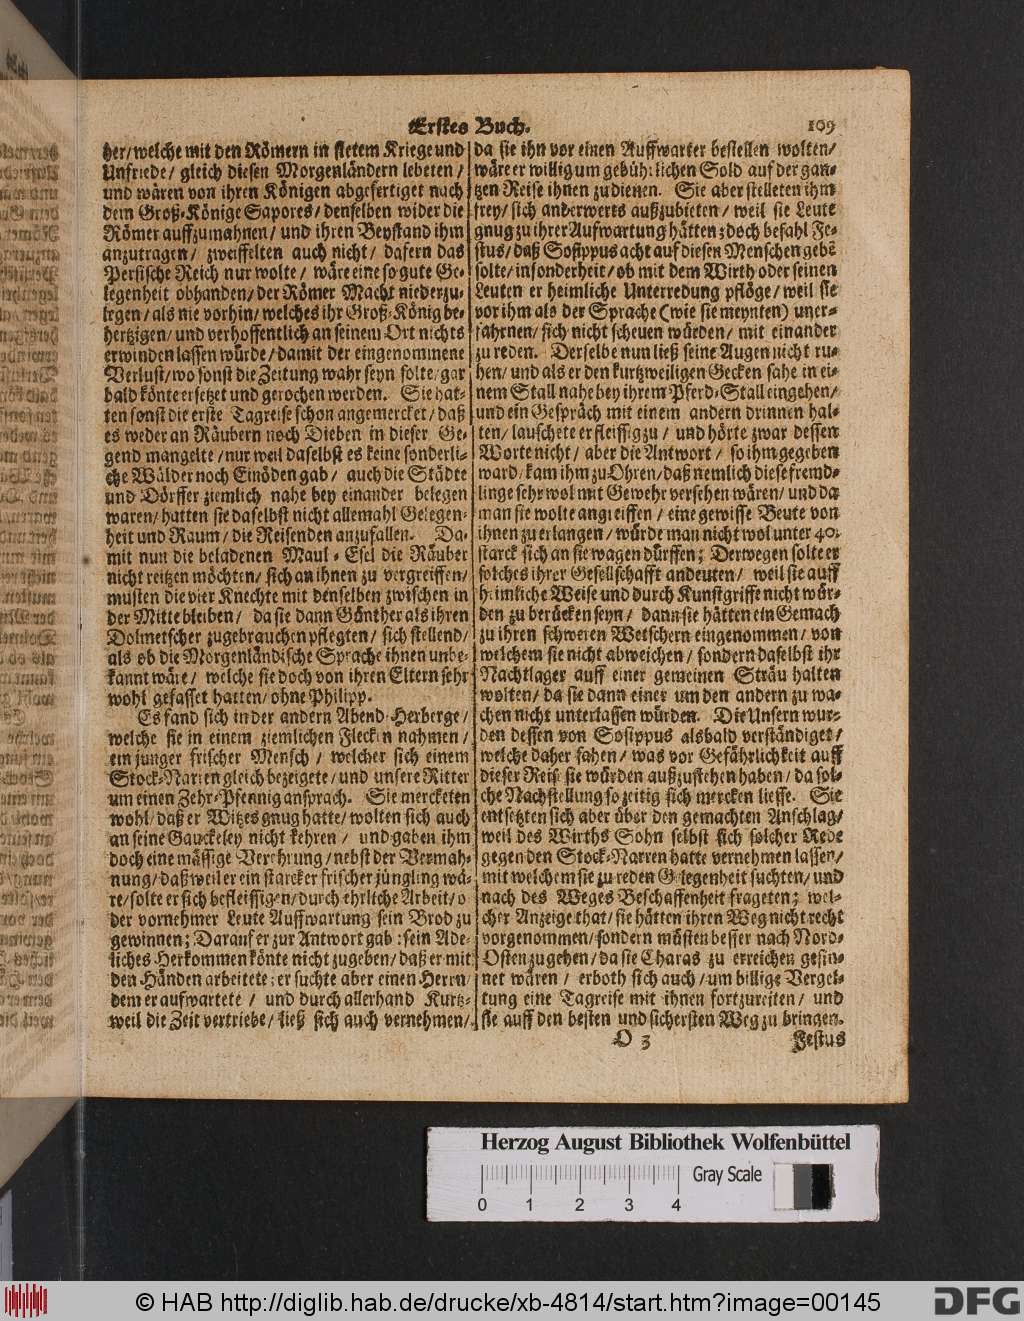 Erstes Buch.
109
her/welche mit den Römern in stetem Kriege und
Unfriede/ gleich diesen Morgenländern lebeten/
und wären von ihren Königen abgefertiget nach
dem Groß-Könige Sapores/denselben wider die
Römer auffzumahnen/ und ihren Beystand ihm
anzutragen/ zweiffelten auch nicht/ dafern das
Persische Reich nur wolte/ wäre eine so gute Ge-
legenheit obhanden/der Römer Macht niederzu-
legen/als nie vorhin/welches ihr Groß-König be-
hertzigen/und verhoffentlich an seinem Ort nichts
erwinden lassen würde/damit der eingenommene
Verlust/wo sonst die Zeitung wahr seyn solte/gar
bald könte ersetzet und gerochen werden. Sie hat-
ten sonst die erste Tagreise schon angemercket/daß
es weder an Räubern noch Dieben in dieser Ge-
gend mangelte/nur weil daselbst es keine sonderli-
che Wälder noch Einöden gab/ auch die Städte
und Dörffer ziemlich nahe bey einander belegen
waren/hatten sie daselbst nicht allemahl Gelegen-
heit und Raum/die Reisenden anzufallen. Da-
mit nun die beladenen Maul-Esel die Räuber
nicht reitzen möchten/sich an ihnen zu vergreiffen/
musten die vier Knechte mit denselben zwischen in
der Mitte bleiben/ da sie dann Günther als ihren
Dolmetscher zugebrauchen pflegten/ sich stellend/
als ob die Morgenländische Sprache ihnen unbe-
kannt wäre/ welche sie doch von ihren Eltern sehr
wohl gefasset hatten/ohne Philipp.
Es fand sich in der andern Abend-Herberge/
welche sie in einem ziemlichen Flecken nahmen/
ein junger frischer Mensch/ welcher sich einem
Stock-Narren gleich bezeigete/und unsere Ritter
um einen Zehr-Pfennig ansprach. Sie mercketen
wohl/daß er Witzes gnug hatte/wolten sich auch
an seine Gauckeley nicht kehren/ und gaben ihm
doch eine mässige Verehrung/nebst der Vermah-
nung/daß weil er ein starcker frischer jüngling wä-
re/solte er sich befleissigen/durch ehrliche Arbeit/o
der vornehmer Leute Auffwartung sein Brod zu
gewinnen; Darauf er zur Antwort gab: sein Ade-
liches Herkommen könte nicht zugeben/daß er mit
den Händen arbeitete; er suchte aber einen Herrn/
dem er aufwartete/ und durch allerhand Kurtz-
weil die Zeit vertriebe/ließ sich auch vernehmen/
da sie ihn vor einen Auffwarter bestellen wolten/
wäre er willig um gebührlichen Sold auf der gan-
tzen Reise ihnen zu dienen. Sie aber stelleten ihm
frey/sich anderwerts außzubieten/ weil sie Leute
gnug zu ihrer Aufwartung hätten; doch befahl Fe-
stus/daß Sosippus acht auf diesen Menschen gebẽ
solte/insonderheit/ob mit dem Wirth oder seinen
Leuten er heimliche Unterredung pflöge/weil sie
vor ihm als der Sprache (wie sie meynten) uner-
fahrnen/sich nicht scheuen würden/ mit einander
zu reden. Derselbe nun ließ seine Augen nicht ru-
hen/und als er den kurtzweiligen Gecken sahe in ei-
nem Stall nahe bey ihrem Pferd-Stall eingehen/
und ein Gespräch mit einem andern drinnen hal-
ten/lauschete er fleissig zu/ und hörte zwar dessen
Worte nicht/ aber die Antwort/ so ihm gegeben
ward/kam ihm zu Ohren/daß nemlich diese fremd-
linge sehr wol mit Gewehr versehen wären/und da
man sie wolte angreiffen/eine gewisse Beute von
ihnen zu erlangen/würde man nicht wol unter 40.
starck sich an sie wagen dürffen; Derwegen solte er
solches ihrer Gesellschafft andeuten/ weil sie auff
heimliche Weise und durch Kunstgriffe nicht wür-
den zu berücken seyn/ dann sie hätten ein Gemach
zu ihren schweren Wetschern eingenommen/ von
welchem sie nicht abweichen/sondern daselbst ihr
Nachtlager auff einer gemeinen Sträu halten
wolten/da sie dann einer um den andern zu wa-
chen nicht unterlassen würden. Die Unsern wur-
den dessen von Sosippus alsbald verständiget/
welche daher sahen/ was vor Gefährlichkeit auff
dieser Reise sie würden außzustehen haben/da sol-
che Nachstellung so zeitig sich mercken liesse. Sie
entsetzten sich aber über den gemachten Anschlag/
weil des Wirths Sohn selbst sich solcher Rede
gegen den Stock-Narren hatte vernehmen lassen/
mit welchem sie zu reden Gelegenheit suchten/und
nach des Weges Beschaffenheit frageten; wel-
cher Anzeige that/sie hätten ihren Weg nicht recht
vorgenommen/sondern müsten besser nach Nord-
Osten zu gehen/da sie Charas zu erreichen gesin-
net wären/ erboth sich auch/um billige Vergel-
tung eine Tagreise mit ihnen fortzureiten/ und
sie auff den besten und sichersten Weg zu bringen.
O 3
Festus
Herzog August Bibliothek Wolfenbüttel
Gray Scale
0 1 2 3 4
© HAB http://diglib.hab.de/drucke/xb-4814/start.htm?image=00145
DFG